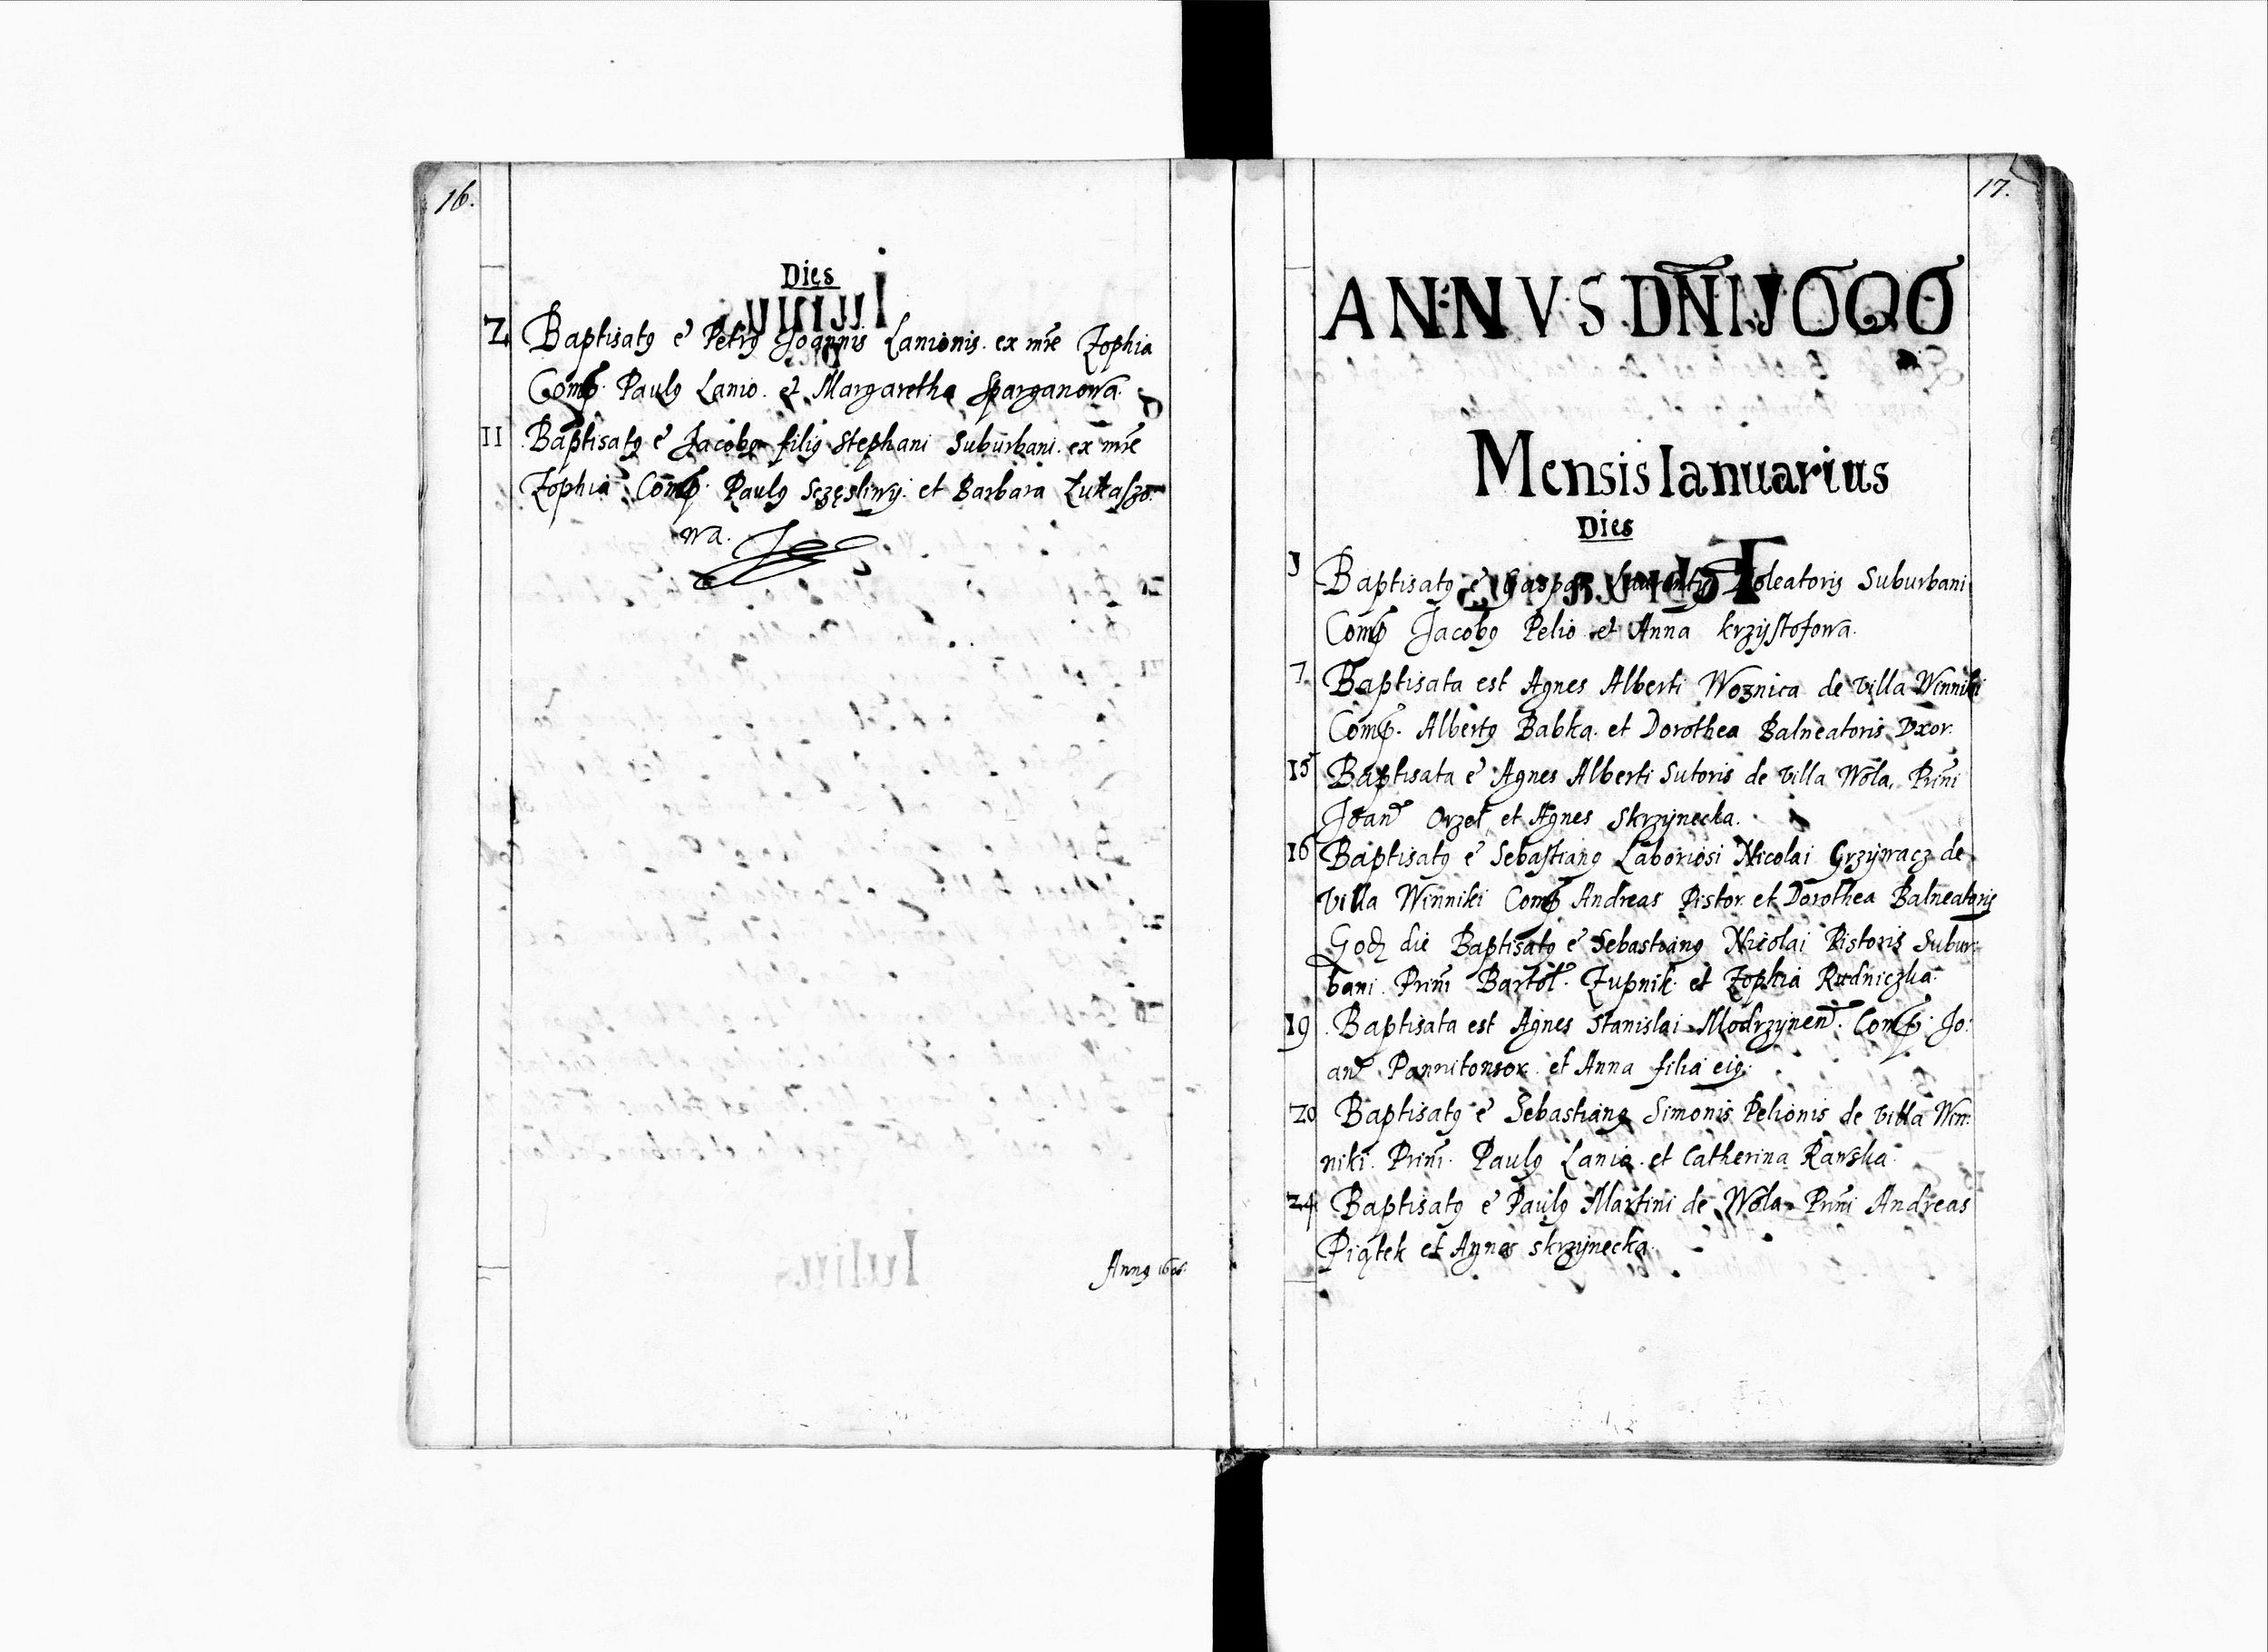 16.
Dies
2 Baptisatꝰ ē Petrꝰ Joannis Lanionis. ex mre̅ Zophia
Comp. Paulꝰ Lanio. et Margaretha Sparganowa.
11 Baptisatꝰ ē Jacobꝰ filiꝰ Stephani Suburbani. ex mre̅
Zophia Comp. Paulꝰ Sczęsliwy. et Barbara Łukaszo-
wa.
Annꝰ 1606.
17.
ANNVS DN̅I J606
Mensis Ianuarius
Dies
3 Baptisatꝰ ē Gaspar Laurentij Doleatoris Suburbani
Comp Jacobꝰ Pelio et Anna krzysztofowa.
7. Baptisata est Agnes Alberti Woznica de villa Winniki
Comp. Albertꝰ Babka. et Dorothea Balneatoris Vxor.
15 Baptisata ē Agnes Alberti Sutoris de villa Wola, Prin̅i
Joan̅ Orzeł et Agnes Skrzynecka.
16 Baptisatꝰ ē Sebastianꝰ Laboriosi Nicolai Grzywacz de
villa Winniki Comp Andreas Pistor et Dorothea Balneatoris
Eod̅ die Baptisatꝰ ē Sebastianꝰ Nicolai Pistoris Subur-
bani. Prin̅i Bartol. Zupnik et Zophia Rudniczka.
19 Baptisata est Agnes Stanislai Modrzynen̅. Comp. Jo:
an̅ Pannitonsor et Anna filia eiꝰ.
20 Baptisatꝰ ē Sebastianꝰ Simonis Pelionis de villa Win:
niki. Prin̅i. Paulꝰ Lanio. et Catherina Rawska.
24 Baptisatꝰ ē Paulꝰ Martini de Wola Prin̅i Andreas
Piątek et Agnes skrzynecka.